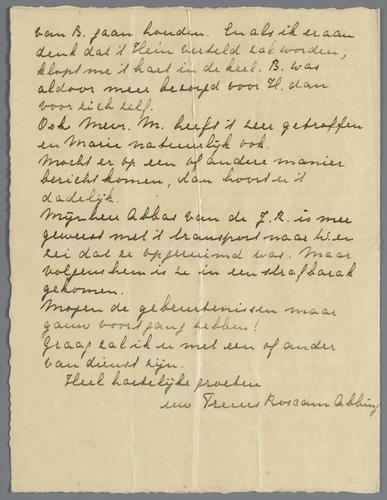 van B. gaan houden. En als ik er aan
denk dat 't Hein verteld zal worden,
klopt me 't hart in de keel. B. was
aldoor meer bezorgd voor H. dan
voor zich zelf.
Ook Mevr. M. heeft 't zeer getroffen
en Marie natuurlijk ook.
Mocht er op een of andere manier
bericht komen, dan hoort U 't
dadelijk.
Mijnheer Abbas van de J. R. is mee
geweest met 't transport naar W. en
zei dat ze opgeruimd was. Maar
volgens hem is ze in een strafbarak
gekomen.
Mogen de gebeurtenissen maar
gauw voortgang hebben!
Graag zal ik U met een of ander
van dienst zijn.
Heel hartelijke groeten
uw Truus Roscam Abbing